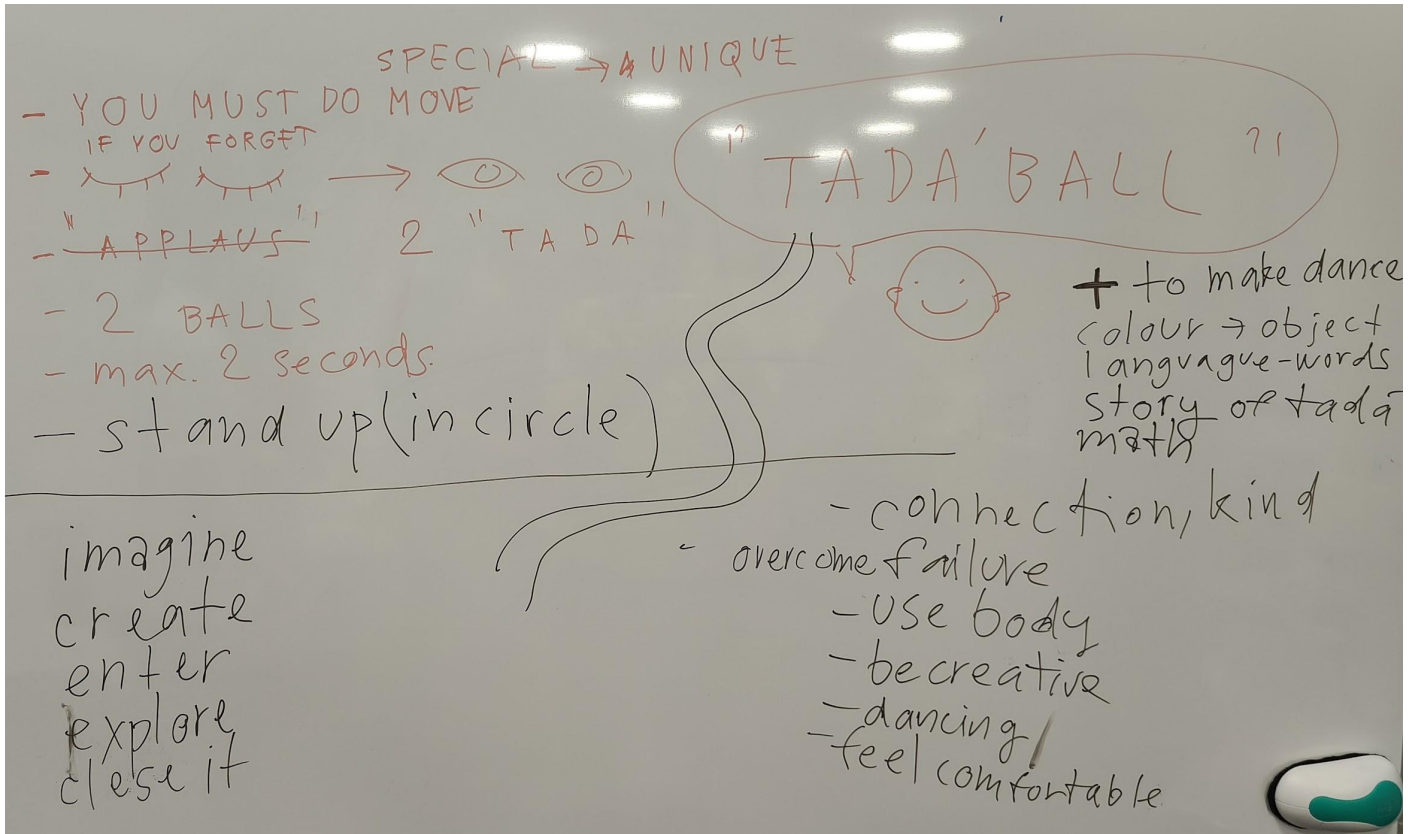 SPECIAL → UNIQUE
- YOU MUST DO MOVE
IF YOU FORGET
- →
- "APPLAUS" 2 "TADA"
- 2 BALLS
- max. 2 seconds.
- stand up (in circle)
"!? TADA'BALL ?!
+ to make dance
colour → object
languague-words
story of tadā
math
imagine
create
enter
explore
clese it
- connection, kind
- overcome failure
- use body
- be creative
- dancing
- feel comfortable